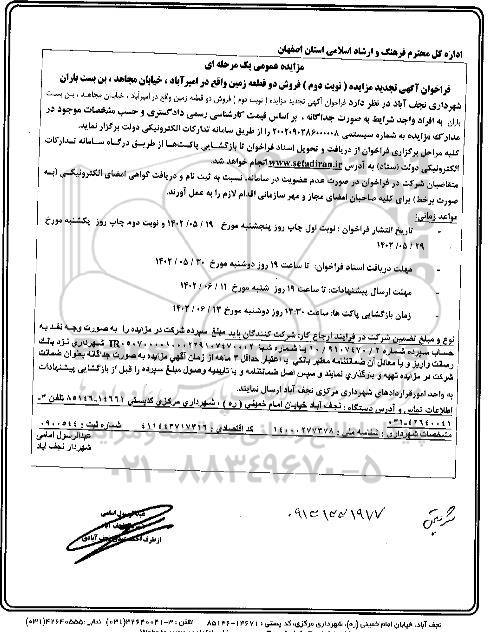 اداره کل محترم فرهنگ و ارشاد اسلامی استان اصفهان
مزایده عمومی یک مرحله ای
فراخوان آگهی تجدید مزایده ( نوبت دوم ) فروش دو قطعه زمین واقع در امیر آباد ، خیابان مجاهد ، بن بست باران
شهرداری نجف آباد در نظر دارد فراخوان آگهی تجدید مزایده ( نوبت دوم ) فروش دو قطعه زمین واقع در امیرآباد ، خیابان مجاهد ، بن بست
باران به افراد واجد شرایط به صورت جداگانه ، بر اساس قیمت کارشناسی رسمی دادگستری و حسب مشخصات موجود در
مدارک مزایده به شماره سیستمی ۲۰۰۲۰۹۰۳۸۶۰۰۰۰۰۸ را از طریق سامانه تدارکات الکترونیکی دولت برگزار نماید.
کلیه مراحل برگزاری فراخوان از دریافت و تحویل اسناد فراخوان تا بازگشایی پاکت‌ها از طریق درگاه سامانه تدارکات
الکترونیکی دولت (ستاد) به آدرس www.setadiran.ir انجام خواهد شد.
متقاضیان شرکت در فراخوان در صورت عدم عضویت در سامانه، نسبت به ثبت نام و دریافت گواهی امضای الکترونیکی (به
صورت برخط) برای کلیه صاحبان امضای مجاز و مهر سازمانی اقدام لازم را به عمل آورند.
مواعد زمانی:
- تاریخ انتشار فراخوان : نوبت اول چاپ روز پنجشنبه مورخ ۱۹ / ۰۵ / ۱۴۰۲ و نوبت دوم چاپ روز یکشنبه مورخ
۲۹ / ۰۵ / ۱۴۰۲
- مهلت دریافت اسناد فراخوان: تا ساعت ۱۹ روز دوشنبه مورخ ۳۰ / ۰۵ / ۱۴۰۲
- مهلت ارسال پیشنهادات: تا ساعت ۱۹ روز شنبه مورخ ۱۱ / ۰۶ / ۱۴۰۲
- زمان بازگشایی پاکت ها: ساعت ۱۳:۳۰ روز دوشنبه مورخ ۱۳ / ۰۶ / ۱۴۰۲
نوع و مبلغ تضمین شرکت در فرایند ارجاع کار: شرکت کنندگان باید مبلغ سپرده شرکت در مزایده را به صورت وجه نقد به
حساب سپرده شماره با شماره شبا شهرداری نزد بانک
رسالت واریز و یا معادل آن ضمانتنامه معتبر بانکی با اعتبار حداقل ۳ ماهه از زمان آگهی مزایده به صورت جداگانه بعنوان ضمانت
شرکت در مزایده تهیه و بارگذاری نمایند و سپس اصل ضمانتنامه و یا تاییدیه وصول مبلغ سپرده را قبل از بازگشایی پیشنهادات
به واحد امور قراردادهای شهرداری مرکزی نجف آباد ارسال نمایند.
اطلاعات تماس و آدرس دستگاه : نجف آباد خیابان امام خمینی ( ره ) ، شهرداری مرکزی کدپستی ۱۴۶۶۱-۸۵۱۴۶ تلفن ۳-
۰۳۱-۴۲۶۴۰۰۴۱
مشخصات شهرداری : شناسه ملی : ۱۴۰۰۰۲۷۷۳۷۸ کد اقتصادی : ۴۱۱۴۴۳۷۱۷۳۱۶ شماره ثبت : ۰۹۰۰۵۴۴
عبدالرسول امامی
شهردار نجف آباد
۰۲۱-۸۸۳۴۹۶۷۰-۵
عبدالرسول امامی
۰۹۱۳۱۳۳۱۹۷۷
نجف آباد، خیابان امام خمینی (ره)، شهرداری مرکزی، کد پستی : ۱۴۶۷۱-۸۵۱۴۶ تلفن : ۳-۴۲۶۴۰۰۴۱(۰۳۱) نمابر: ۴۲۶۴۰۵۵۵(۰۳۱)